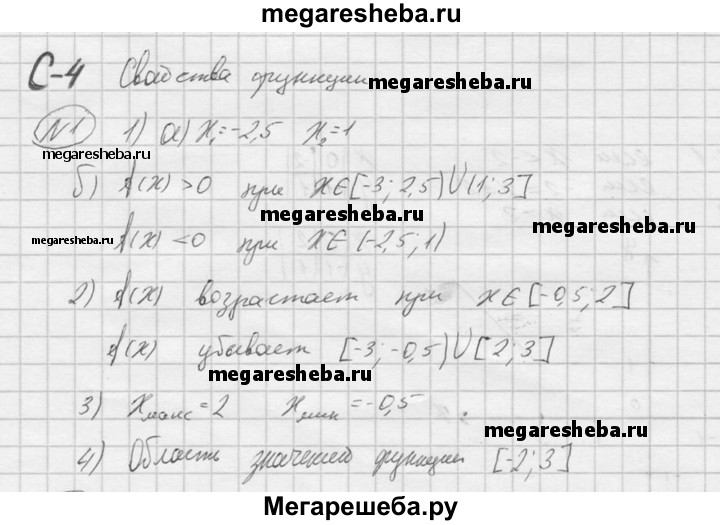 megaresheba.ru
С-4 Свойства функции
megaresheba.ru
№1 1) а) x₁=-2,5 x₂=1
megaresheba.ru
б) f(x)>0 при x∈[-3; 2,5)∪(1; 3]
megaresheba.ru
megaresheba.ru f(x)<0 при x∈(-2,5; 1)
megaresheba.ru
2) f(x) возрастает при x∈[-0,5; 2]
f(x) убывает [-3; -0,5)∪[2; 3]
megaresheba.ru
3) xмакс=2 xмин=-0,5
megaresheba.ru
4) Область значений функции [-2; 3]
Мегарешеба.ру